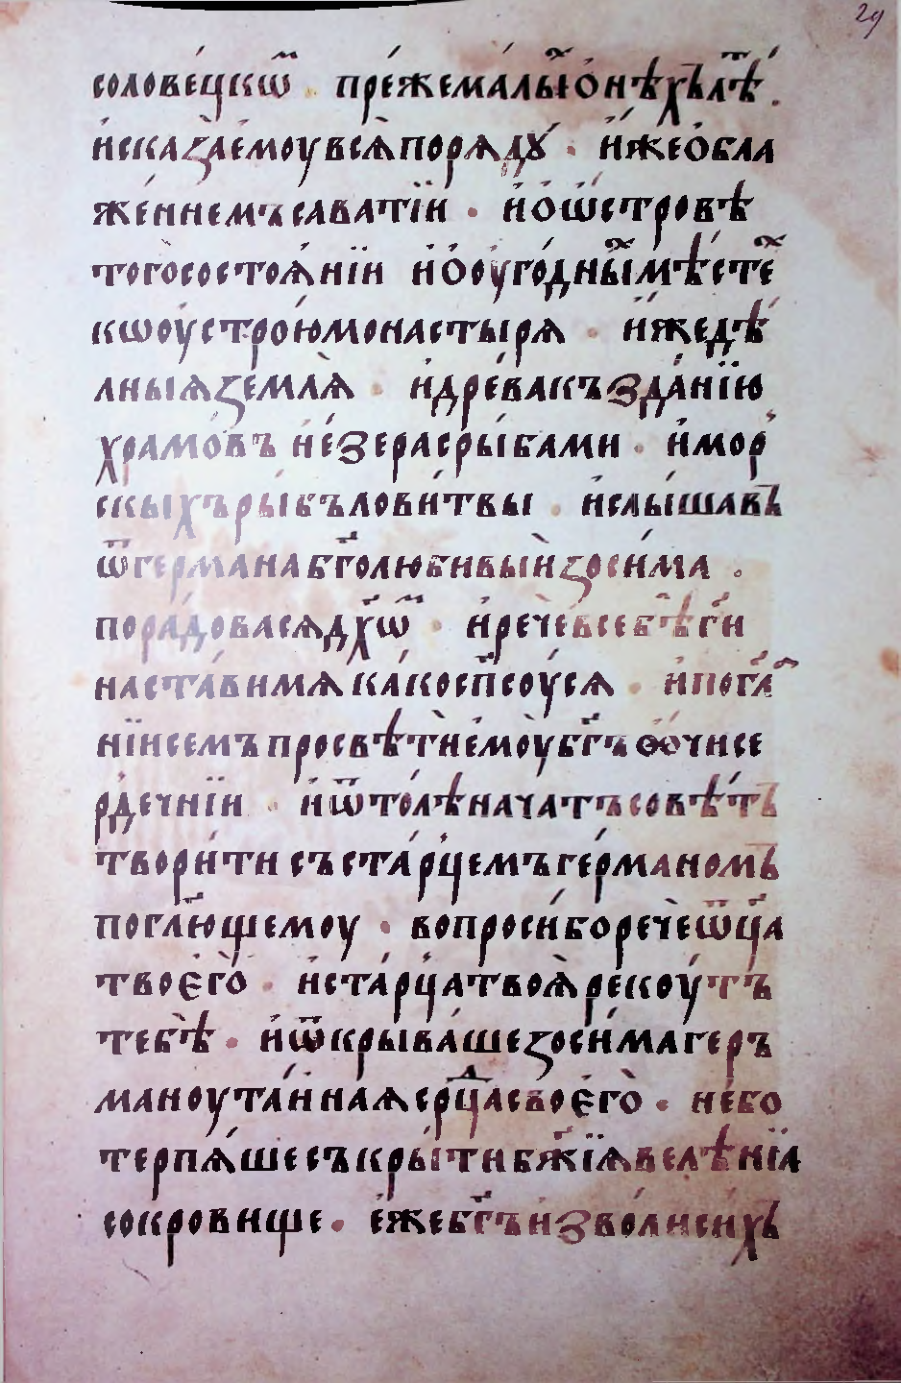 29
соловецкѡⷨ преже малыⷯ ѻнѣхъ лⷮѣ .
и сказаемоу всѧ порѧдꙋ · иже ѻ бла
женнемъ саватїи · и ѻ ѡстровѣ
того состоѧнїи и ѻ оугодныⷯ мѣстеⷯ
к оустрою монастырѧ · и жедѣ
лныѧ землѧ · и древа къ зданїю
храмовъ и езера с рыбами · и мор
скыхъ рыбъ ловитвы · и слышавъ
ѿ германа бг҃олюбивый зосима .
порадовасѧ дх҃ѡⷨ · и рече в себѣ гⷭ҇и
настави мѧ како сп҃соусѧ · и по гл҃а
нїи семъ просвѣтне моу бг҃ъ ѻчи се
рдечнїи · и ѿтолѣ начатъ совѣтъ
творити съ старцемъ германомъ
по гл҃ющемоу · вопроси бо рече ѿц҃а
твоего · и старца твоѧ рекоутъ
тебѣ · и ѿкрываше зосима гер
маноу таинная срⷣца своего · не бо
терпѧше съкрыти бж҃їѧ велѣнїа
сокровище · еже бг҃ъ изволи сихъ